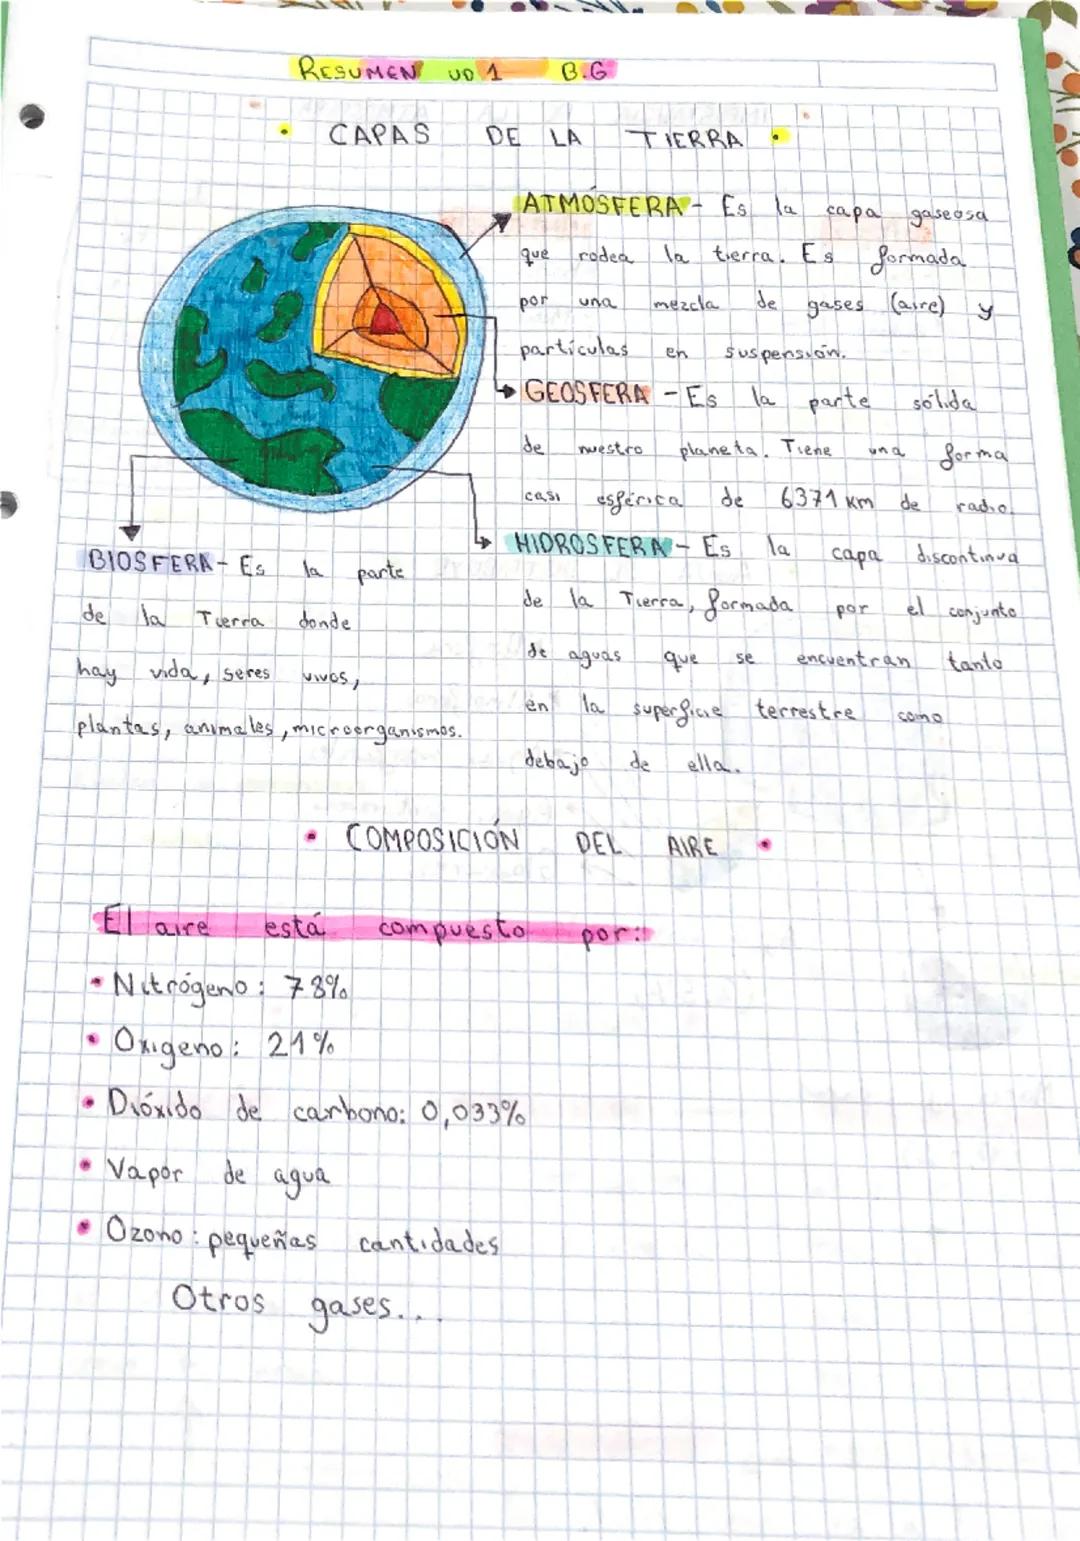 RESUMEN UD 1 B.G
• CAPAS DE LA TIERRA •
ATMÓSFERA - Es la capa gaseosa
que rodea la tierra. Es formada
por una mezcla de gases (aire) y
partículas en suspensión.
GEOSFERA - Es la parte sólida
de nuestro planeta. Tiene una forma
casi esférica de 6371 km de radio.
HIDROSFERA - Es la capa discontinua
de la Tierra, formada por el conjunto
de aguas que se encuentran tanto
en la superficie terrestre como
debajo de ella.
BIOSFERA - Es la parte
de la Tierra donde
hay vida, seres vivos,
plantas, animales, microorganismos.
• COMPOSICIÓN DEL AIRE •
El aire está compuesto por:
• Nitrógeno: 78%
• Oxígeno: 21%
• Dióxido de carbono: 0,033%
• Vapor de agua
• Ozono: pequeñas cantidades
Otros gases...